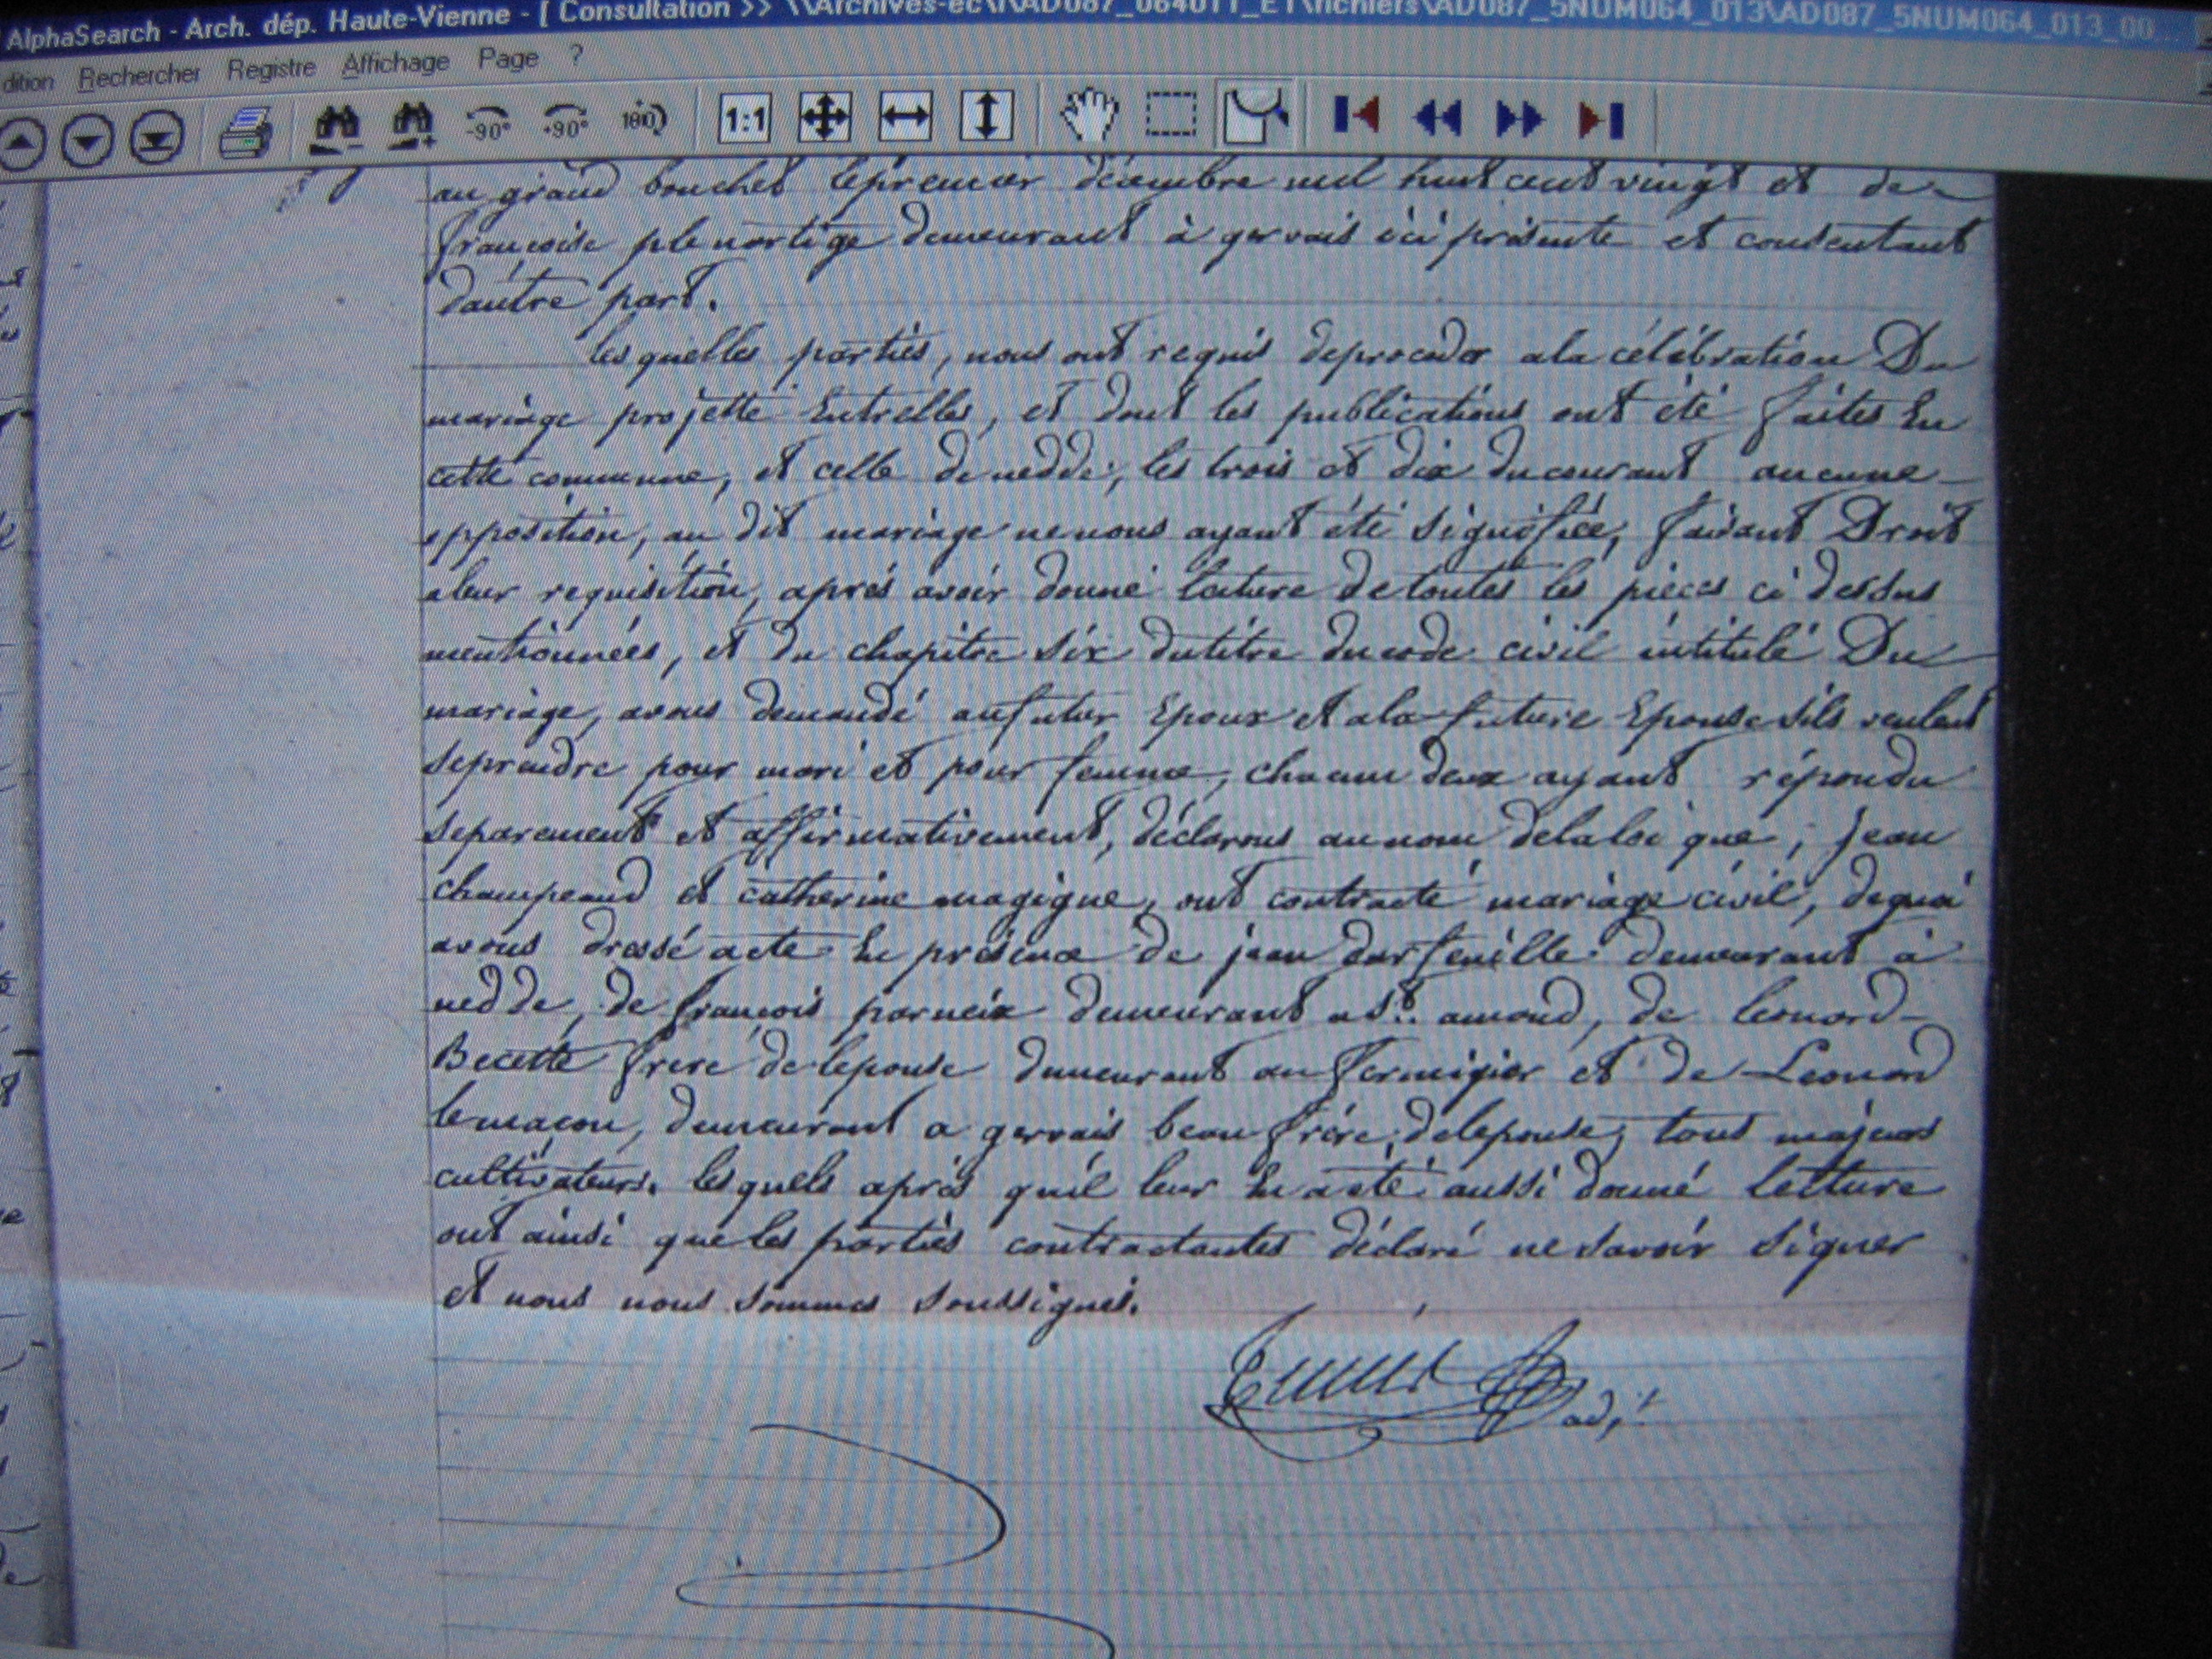 AlphaSearch - Arch. dép. Haute-Vienne - [ Consultation >> \\Archives-ec\I\AD087_064011_E1\fichiers\AD087_5NUM064_013\AD087_5NUM064_013_00...
dition Rechercher Registre Affichage Page ?
-90° +90° 180 1:1
au grand bouchet le premier décembre mil huit cent vingt et de
françoise plenartige demeurant à gervais ici présente et consentant
d'autre part.
les quelles parties, nous ont requis de proceder a la célébration Du
mariage projetté Entrelles, et dont les publications ont été faites En
cette commune, et celle de nedde, les trois et dix du courant aucune
opposition, au dit mariage ne nous ayant été signifiée, faisant Droit
a leur requisition, après avoir donné lecture de toutes les pièces ci dessus
mentionnées, et du chapitre six du titre du code civil intitulé Du
mariage, avons demandé au futur Epoux et a la future Epouse sils veulent
se prendre pour mari et pour femme, chacun deux ayant répondu
separement et affirmativement, déclarons au nom de la loi que, jean
champeaud et catherine magigue, ont contracté mariage civil, de quoi
avons dressé acte En présence de jean darfeuille demeurant à
nedde, de françois parneix demeurant a St. amand, de leonard
Becette frere de lepouse demeurant au fermigier et de Leonard
lemaçon, demeurant a gervais beau frère de lepouse, tous majeurs
cultivateurs, lesquels après quil leur En a été aussi donné letture
ont ainsi que les parties contractantes déclaré ne savoir signer
et nous nous sommes soussignés.
adj.t